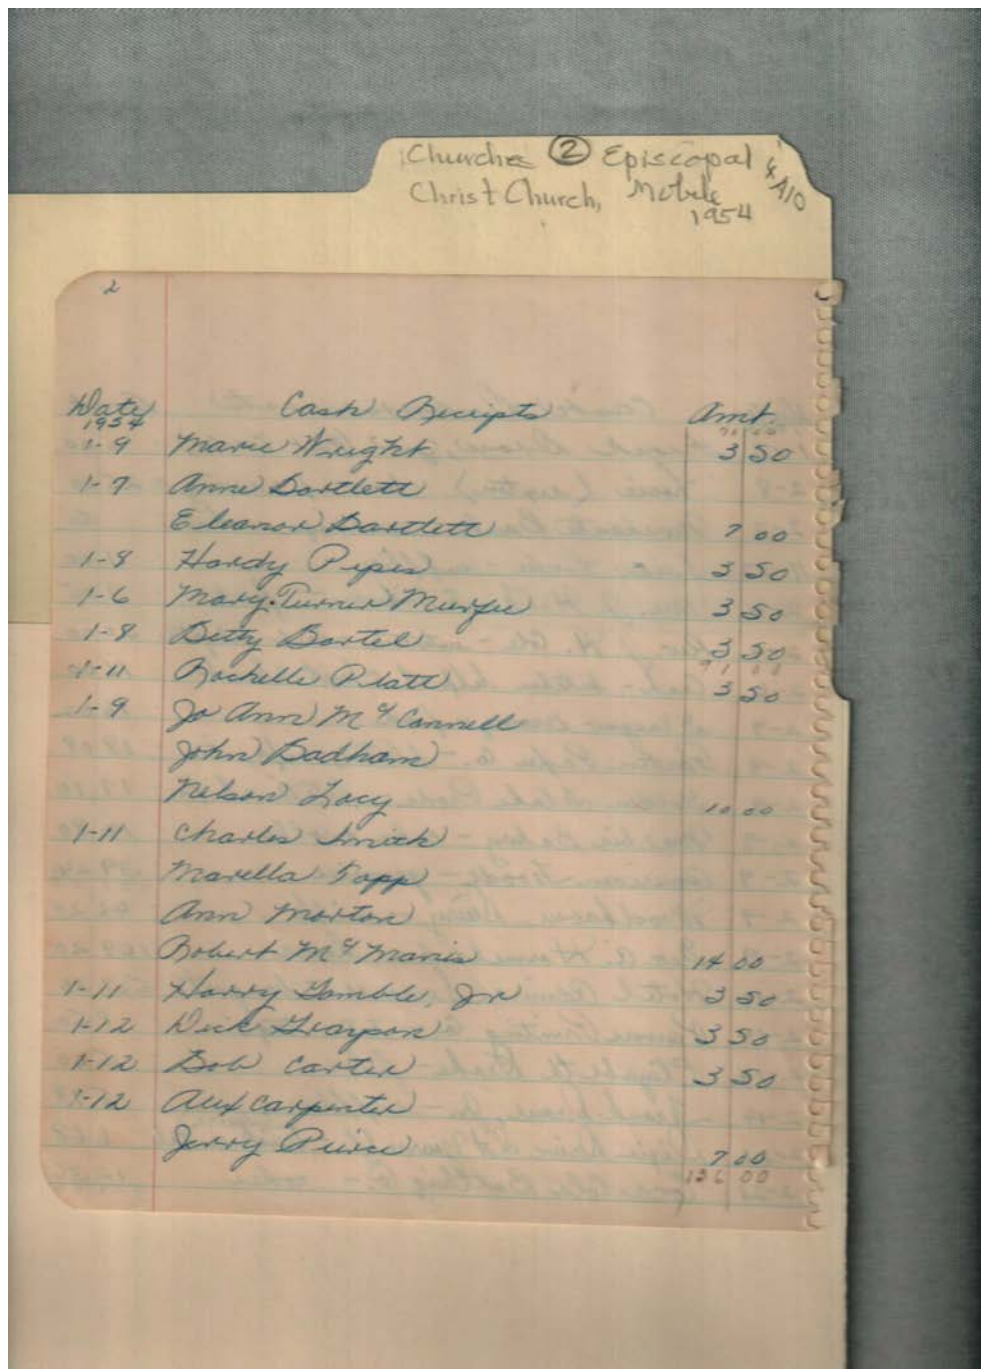 Churches ② Episcopal & A10
Christ Church, Mobile
1954
2
Date Cash Receipts Amt.
1954
1-9 Marie Wright 3 50
1-7 Anne Bartlett
Eleanor Bartlett 7 00
1-8 Hardy Pipes 3 50
1-6 Mary Turner Murfee 3 50
1-8 Betty Bartel 3 50
1-11 Rochelle Platt 3 50
1-9 Jo Ann McConnell
John Badham
Nelson Lacy 10 00
1-11 Charles Smith
Marella Topp
Ann Morton
Robert McManis 14 00
1-11 Harry Gamble, Jr 3 50
1-12 Dick Grayson 3 50
1-12 Bob Carter 3 50
1-12 Alex Carpenter
Jerry Pierce 7 00
136 00